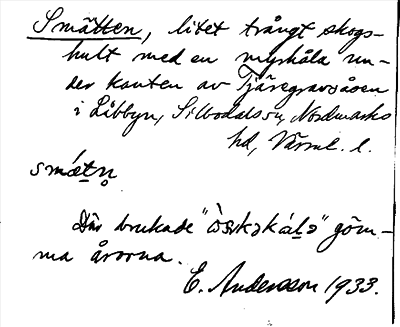 Smätten, litet trångt skogs-
hult med en myrhåla un-
der kanten av Tjäregravsåsen
i Löbbyn, Silbodals sn, Nordmarks
hd, Värml. l.
smǽtn̥
Där brukade "òskəkálə" göm-
ma årorna.
E. Andersson 1933.